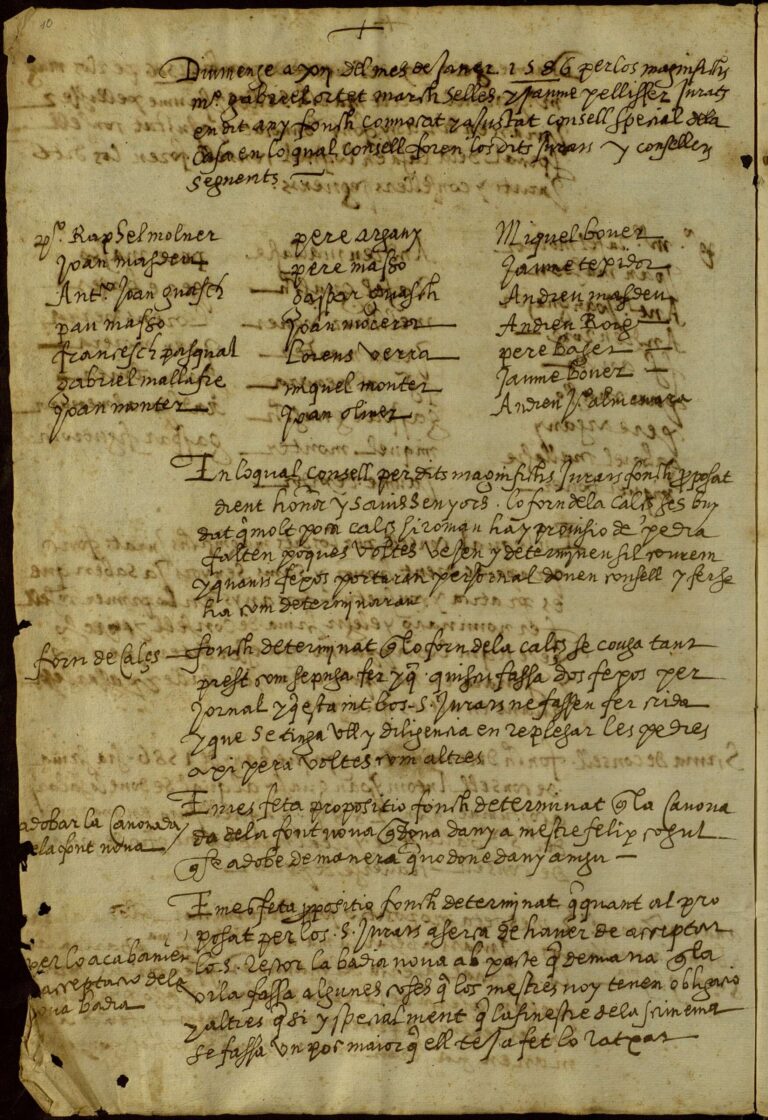 10
Diumenge a xii del mes de Janer 1586 per los magnifichs
mº gabriel ortet march selles y Jaume pellisser Jurats
en dit any fonch convocat y aiustat consell special de la
Casa en lo qual consell foren los dits Jurats y consellers
seguents
pº. Raphel molner
Joan masdeu
Antº Joan guasch
pau masso
francesch pasqual
gabriel mallafre
Joan monter
pere argany
pere masso
Gaspar guasch
Joan
Lorens verra
miquel monter
Joan oliver
Miquel bover
Jaume texidor
Andreu masdeu
Andreu Roig
pere
Jaume bover
Andreu Jº almenara
En lo qual consell per dits magnifichs Jurats fonch pposat
dient honor y savis senyors. lo forn de la cals ses buy
dat q molt poca cals si roman hay provisio de pedra
falten poques voltes vejen y determinen sil courem
y quants fexos portaran per jornal donen consell y fer se
ha com determinaran
forn de Cals
fonch determinat q lo forn de la cals se couga tant
prest com se puga fer y q quiscu fassa dos fexos per
Jornal y q esta int bos. S. Jurats ne fassen fer crida
y que se tinga ull y diligencia en replegar les pedres
axi pera voltes com altres
adobar la Canonada
de la font nova
E mes feta propositio fonch determinat q la Canona
da de la font nova q dona dany a mestre felip cogul
q se adobe de manera q no done dany a ningu
per lo acabamen
acceptacio de la
nova badia
E mes feta ppositio fonch determinat q quant al pro
posat per los. S. Jurats aserca de haver de acceptar
lo S. Rector la badia nova ab pacte q demana q la
vila fassa algunes coses q los mestres no y tenen obligacio
y altres q si y specialment q la finestre de la
se fassa un poc maior q ell te ja fet lo